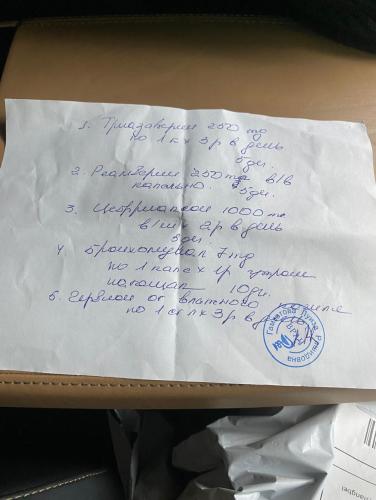 1. Триазаверин 250 mg
по 1 к х 3 р в день
5 дн.
2. Реамберин 250 mg в/в
капельно. 5 дн.
3. Цефтриаксон 1000 mg
в/м х 2 р в день
5 дн.
4. Бронхомунал 7 mg
по 1 капс х 1 р утром
натощак 10 дн.
5. от влажного кашля
по 1 с л х 3 р в день
ВРАЧ